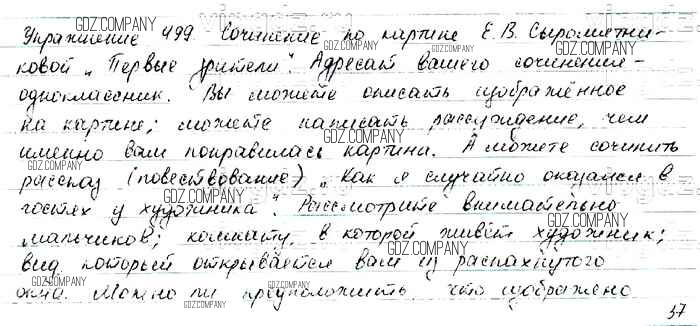 Упражнение 499 Сочинение по картине Е.В. Сыромятни-
ковой „Первые зрители". Адресат вашего сочинения -
одноклассник. Вы можете описать изображённое
на картине; можете написать рассуждение, чем
именно вам понравилась картина. А можете сочинить
рассказ (повествование) „Как я случайно оказался в
гостях у художника". Рассмотрите внимательно
мальчиков; комнату, в которой живёт художник;
вид, который открывается вам из распахнутого
окна. Можно ли предположить, что изображено
37
GDZ.COMPANY
GDZ.COMPANY
GDZ.COMPANY
GDZ.COMPANY
GDZ.COMPANY
GDZ.COMPANY
GDZ.COMPANY
GDZ.COMPANY
GDZ.COMPANY
GDZ.COMPANY
GDZ.COMPANY
GDZ.COMPANY
GDZ.COMPANY